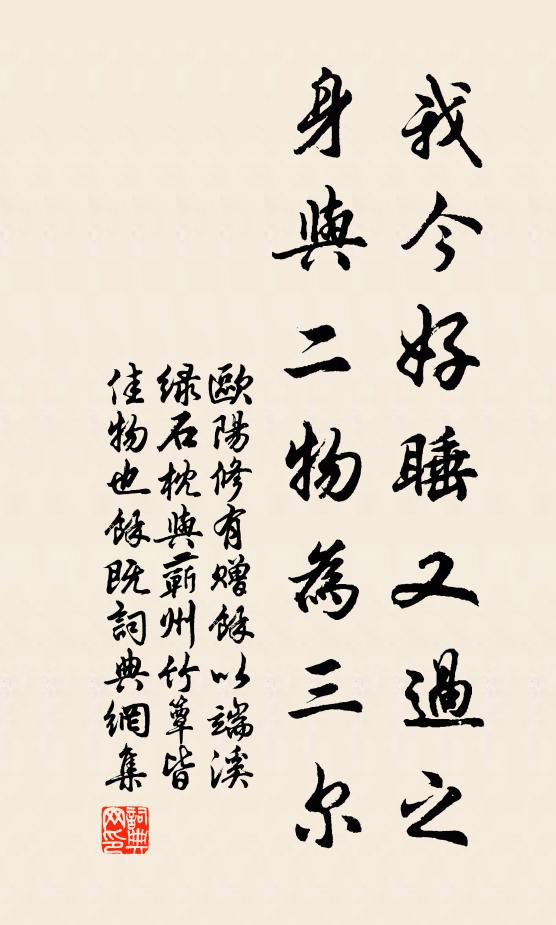 我今好睡又過之
身與二物為三尔
歐陽修有贈餘以端溪
绿石枕與蘄州竹簟皆
佳物也餘既詞典網集
詞典
网印